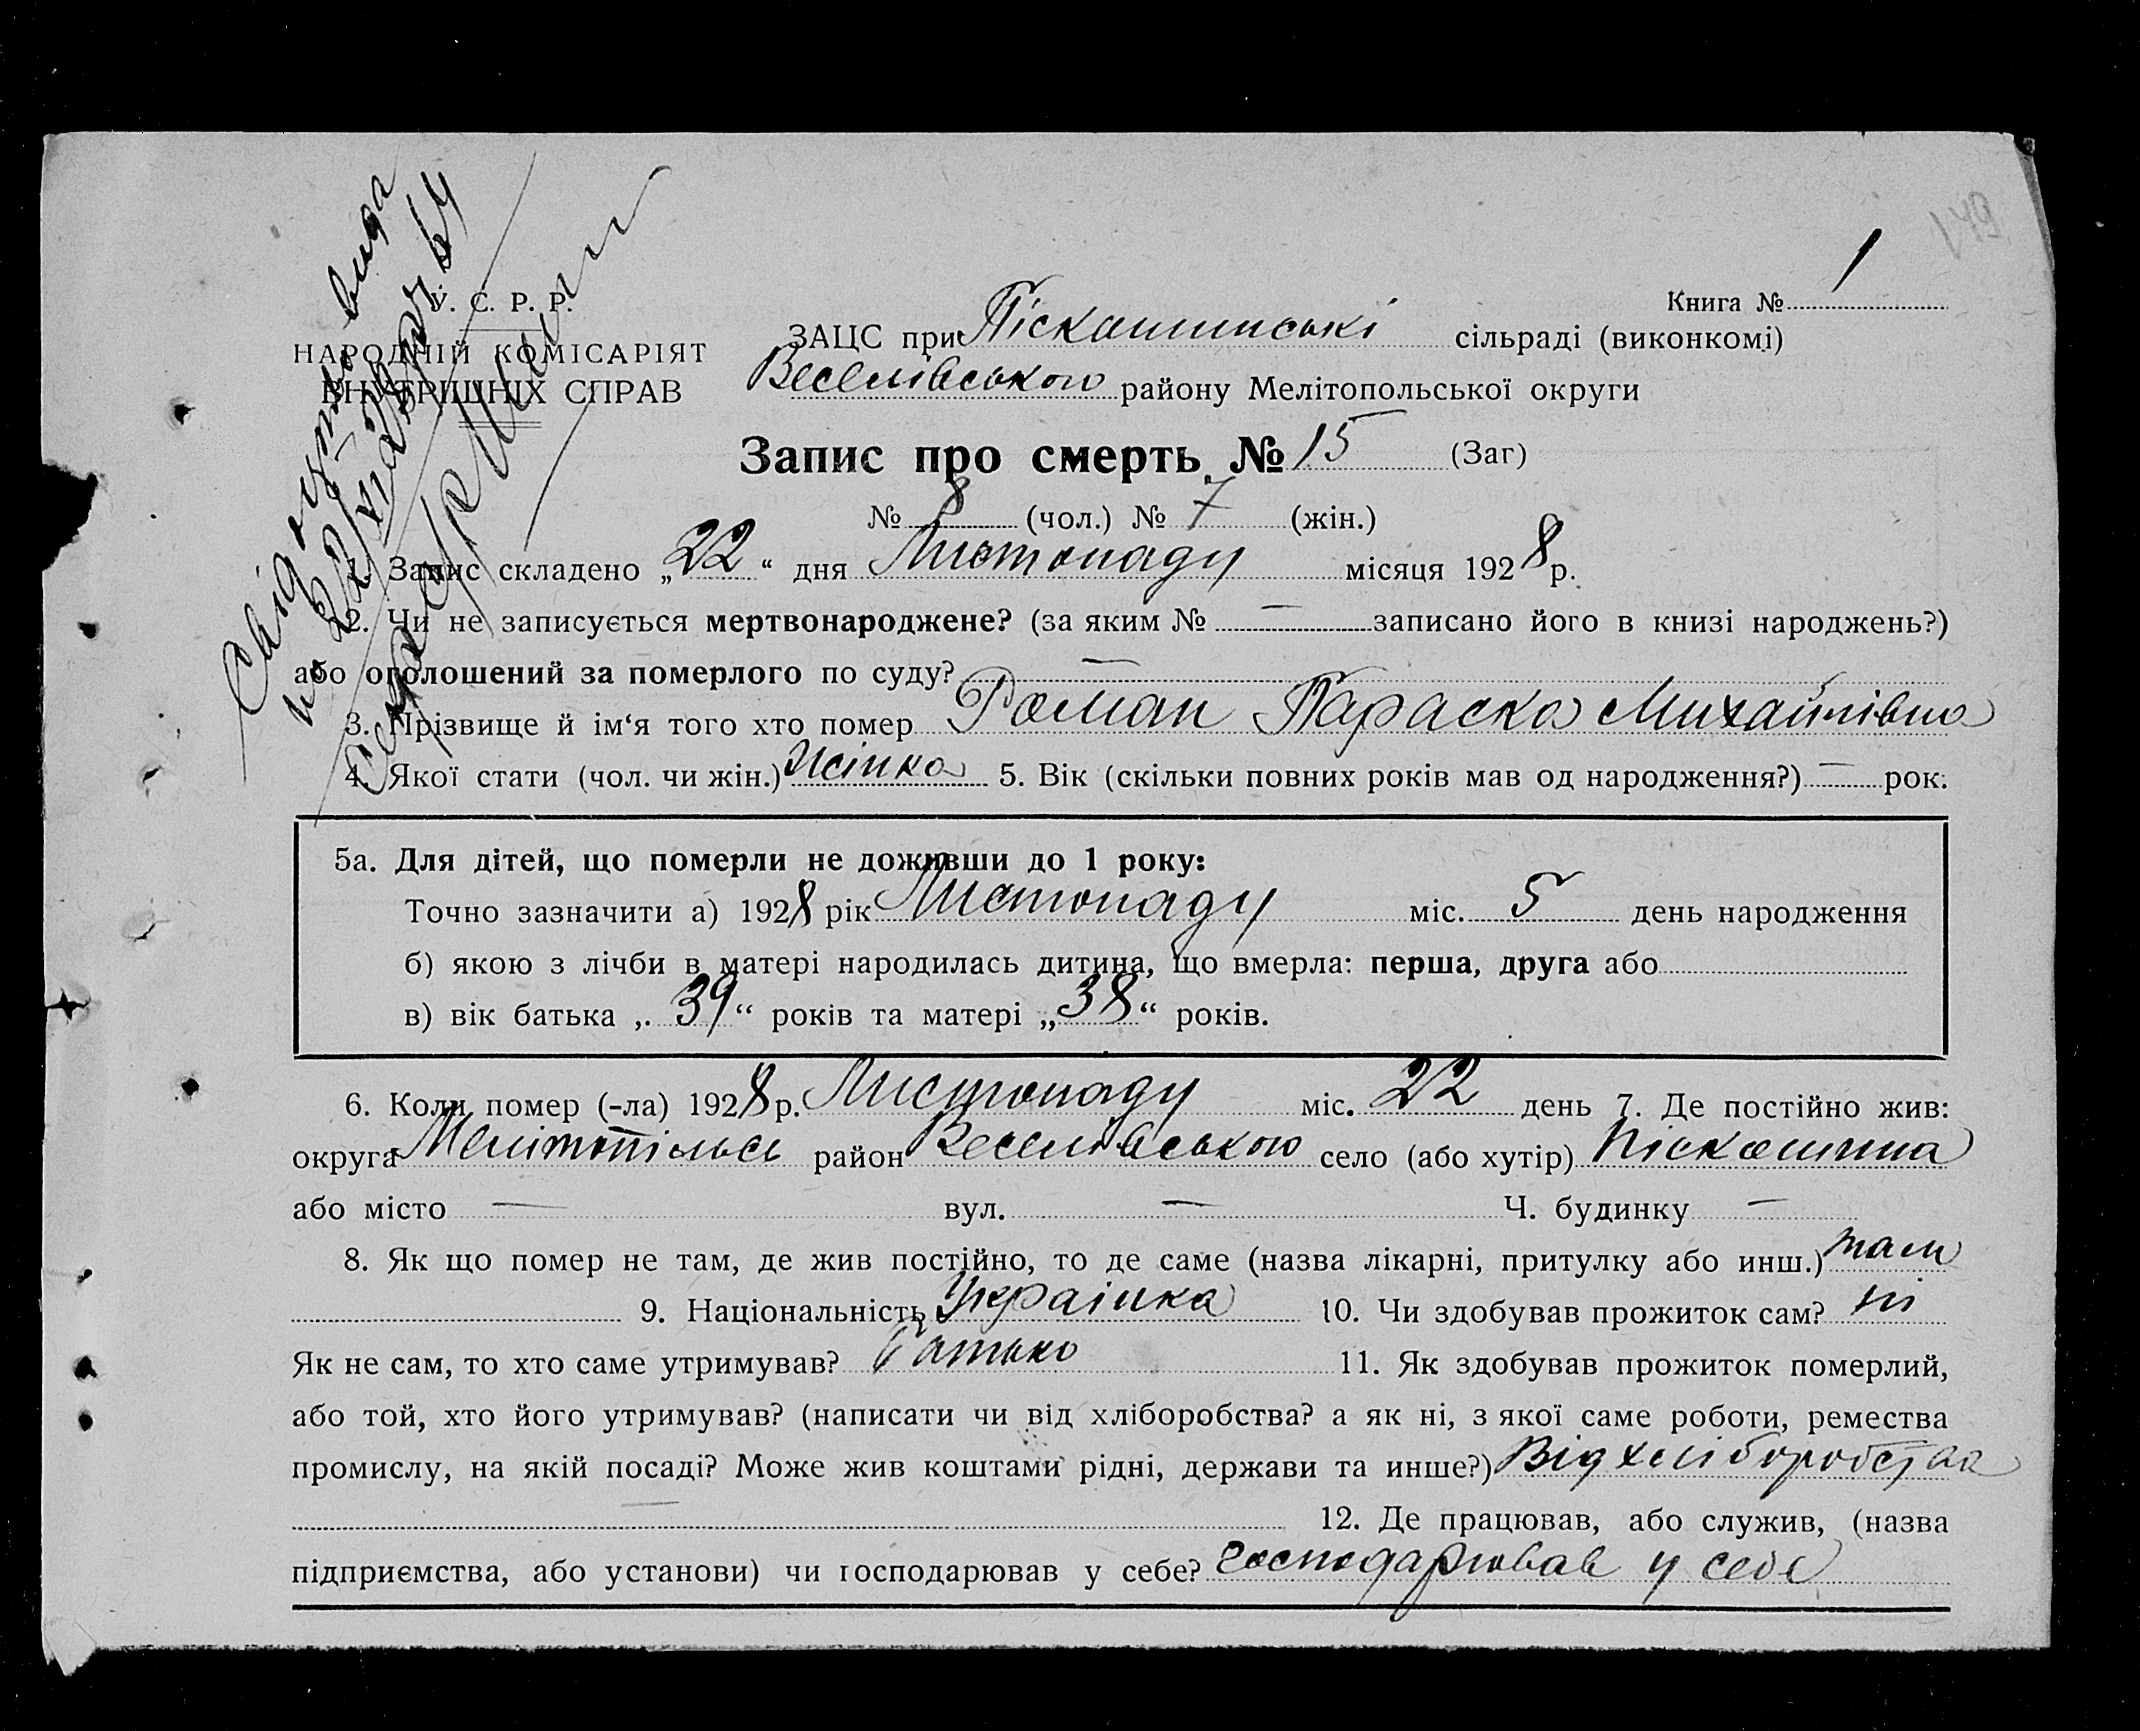 У. С. Р. Р.
Книга № 1
НАРОДНІЙ КОМІСАРІЯТ
ВНУТРІШНІХ СПРАВ
ЗАЦС при Піскошинські сільраді (виконкомі)
Веселівського району Мелітопольської округи
Запис про смерть № 15 (Заг)
№ 8 (чол.) № 7 (жін.)
1. Запис складено „22“ дня Листопаду місяця 1928 р.
2. Чи не записується мертвонароджене? (за яким № — записано його в книзі народжень?)
або оголошений за померлого по суду? —
3. Прізвище й ім‘я того хто помер Роман Параска Михайлівна
4. Якої стати (чол. чи жін.) Жінка 5. Вік (скільки повних років мав од народження?) — рок.
5а. Для дітей, що померли не доживши до 1 року:
Точно зазначити а) 1928 рік Листопаду міс. 5 день народження
б) якою з лічби в матері народилась дитина, що вмерла: перша, друга або
в) вік батька „39“ років та матері „38“ років.
6. Коли помер (-ла) 1928 р. Листопаду міс. 22 день 7. Де постійно жив:
округа Мелітопільсь район Веселівського село (або хутір) Піскошина
або місто — вул. — Ч. будинку —
8. Як що помер не там, де жив постійно, то де саме (назва лікарні, притулку або инш.) там
9. Національність Українка 10. Чи здобував прожиток сам? ні
Як не сам, то хто саме утримував? батько 11. Як здобував прожиток померлий,
або той, хто його утримував? (написати чи від хліборобства? а як ні, з якої саме роботи, ремества
промислу, на якій посаді? Може жив коштами рідні, держави та инше?) Від хліборобства
— 12. Де працював, або служив, (назва
підприємства, або установи) чи господарював у себе? господарював у себе